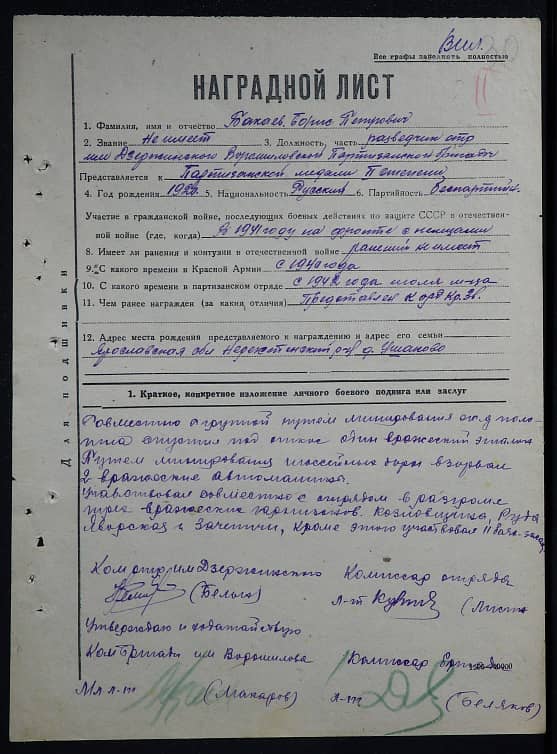 Вил.
Все графы заполнять полностью
НАГРАДНОЙ ЛИСТ
1. Фамилия, имя и отчество Бакаев Борис Петрович
2. Звание не имеет 3. Должность, часть разведчик отр
им Дзержинского Ворошиловской Партизанской бригады
Представляется к Партизанской медали II степени
4. Год рождения 5. Национальность Русский 6. Партийность беспартийн.
Участие в гражданской войне, последующих боевых действиях по защите СССР и отечественной войне (где, когда) В 1941 году на фронте с немцами
8. Имеет ли ранения и контузии в отечественной войне ранений не имеет
9. С какого времени в Красной Армии с 1940 года
10. С какого времени в партизанском отряде с 1942 года июля м-ца
11. Чем ранее награжден (за какие отличия) Представлен к орд Кр. Зв.
12. Адрес места рождения представляемого к награждению и адрес его семьи
Ярославская обл Нерехтинский р-н д. Ушаково
Для подшивки
1. Краткое, конкретное изложение личного боевого подвига или заслуг
Совместно с группой путем минирования ж.д поло-
тна спустил под откос один вражеский эшелон
Путем минирования шоссейных дорог взорвал
2 вражеские автомашины.
Участвовал совместно с отрядом в разгроме
трех вражеских гарнизонов. Козловщина, Руда
Яворская и Зачепичи, кроме этого участвовал 11
Ком отр. им Дзержинского Комиссар отряда
(Белых) Л-нт
Утверждаю и ходатайствую
Комбригады им Ворошилова Комиссар
Мл л-нт (Макаров) Л-нт (Беляков)